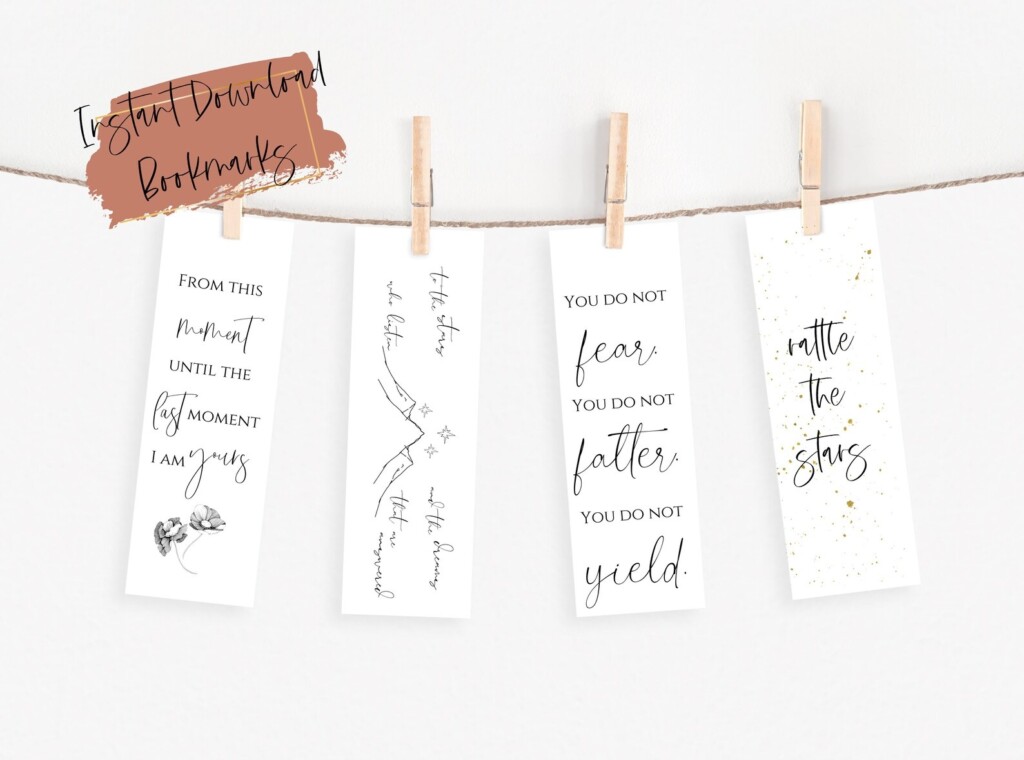 Instant Download
Bookmarks
FROM THIS
moment
UNTIL THE
last MOMENT
I AM yours
to the stars
who listen
and the dreams
that are
answered
YOU DO NOT
fear.
YOU DO NOT
falter.
YOU DO NOT
yield.
rattle
the
stars